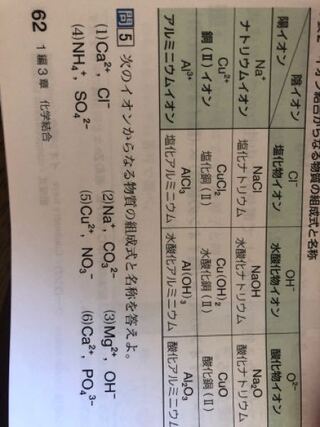 表2 イオン結合からなる物質の組成式と名称
陽イオン 陰イオン Cl⁻ 塩化物イオン OH⁻ 水酸化物イオン O²⁻ 酸化物イオン
Na⁺ NaCl NaOH Na₂O
ナトリウムイオン 塩化ナトリウム 水酸化ナトリウム 酸化ナトリウム
Cu²⁺ CuCl₂ Cu(OH)₂ CuO
銅(Ⅱ)イオン 塩化銅(Ⅱ) 水酸化銅(Ⅱ) 酸化銅(Ⅱ)
Al³⁺ AlCl₃ Al(OH)₃ Al₂O₃
アルミニウムイオン 塩化アルミニウム 水酸化アルミニウム 酸化アルミニウム
問5 次のイオンからなる物質の組成式と名称を答えよ。
(1)Ca²⁺, Cl⁻ (2)Na⁺, CO₃²⁻ (3)Mg²⁺, OH⁻
(4)NH₄⁺, SO₄²⁻ (5)Cu²⁺, NO₃⁻ (6)Ca²⁺, PO₄³⁻
62 1編3章 化学結合